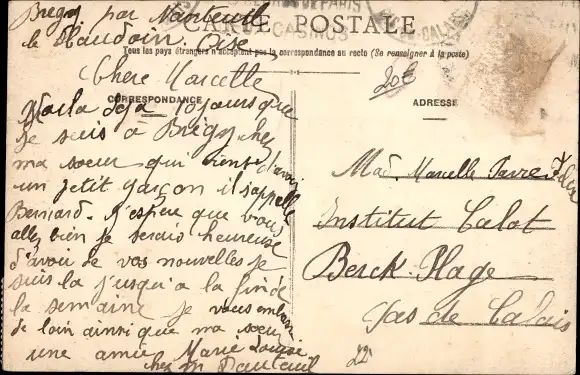 Brégy par Nanteuil
le Haudoin, oise
CARTE POSTALE
Tous les pays étrangers n'acceptent pas la correspondance au recto (Se renseigner à la poste)
CORRESPONDANCE
Chere Marcelle
Voila deja 10 jours que
je suis a Brégy chez
ma soeur qui vient d'avoir
un petit garçon il s'appelle
Bernard. J'espère que vous
allez bien je serais heureuse
d'avoir de vos nouvelles je
suis la jusqu'a la fin de
la semaine je vous embrasse
de loin ainsi que ma soeur
une amie Marie Louise
chez m Dauteuil
20c
ADRESSE
Mad. Marcelle Favre
Institut Calot
Berck-Plage
Pas de Calais
22
PARIS
CASINOS